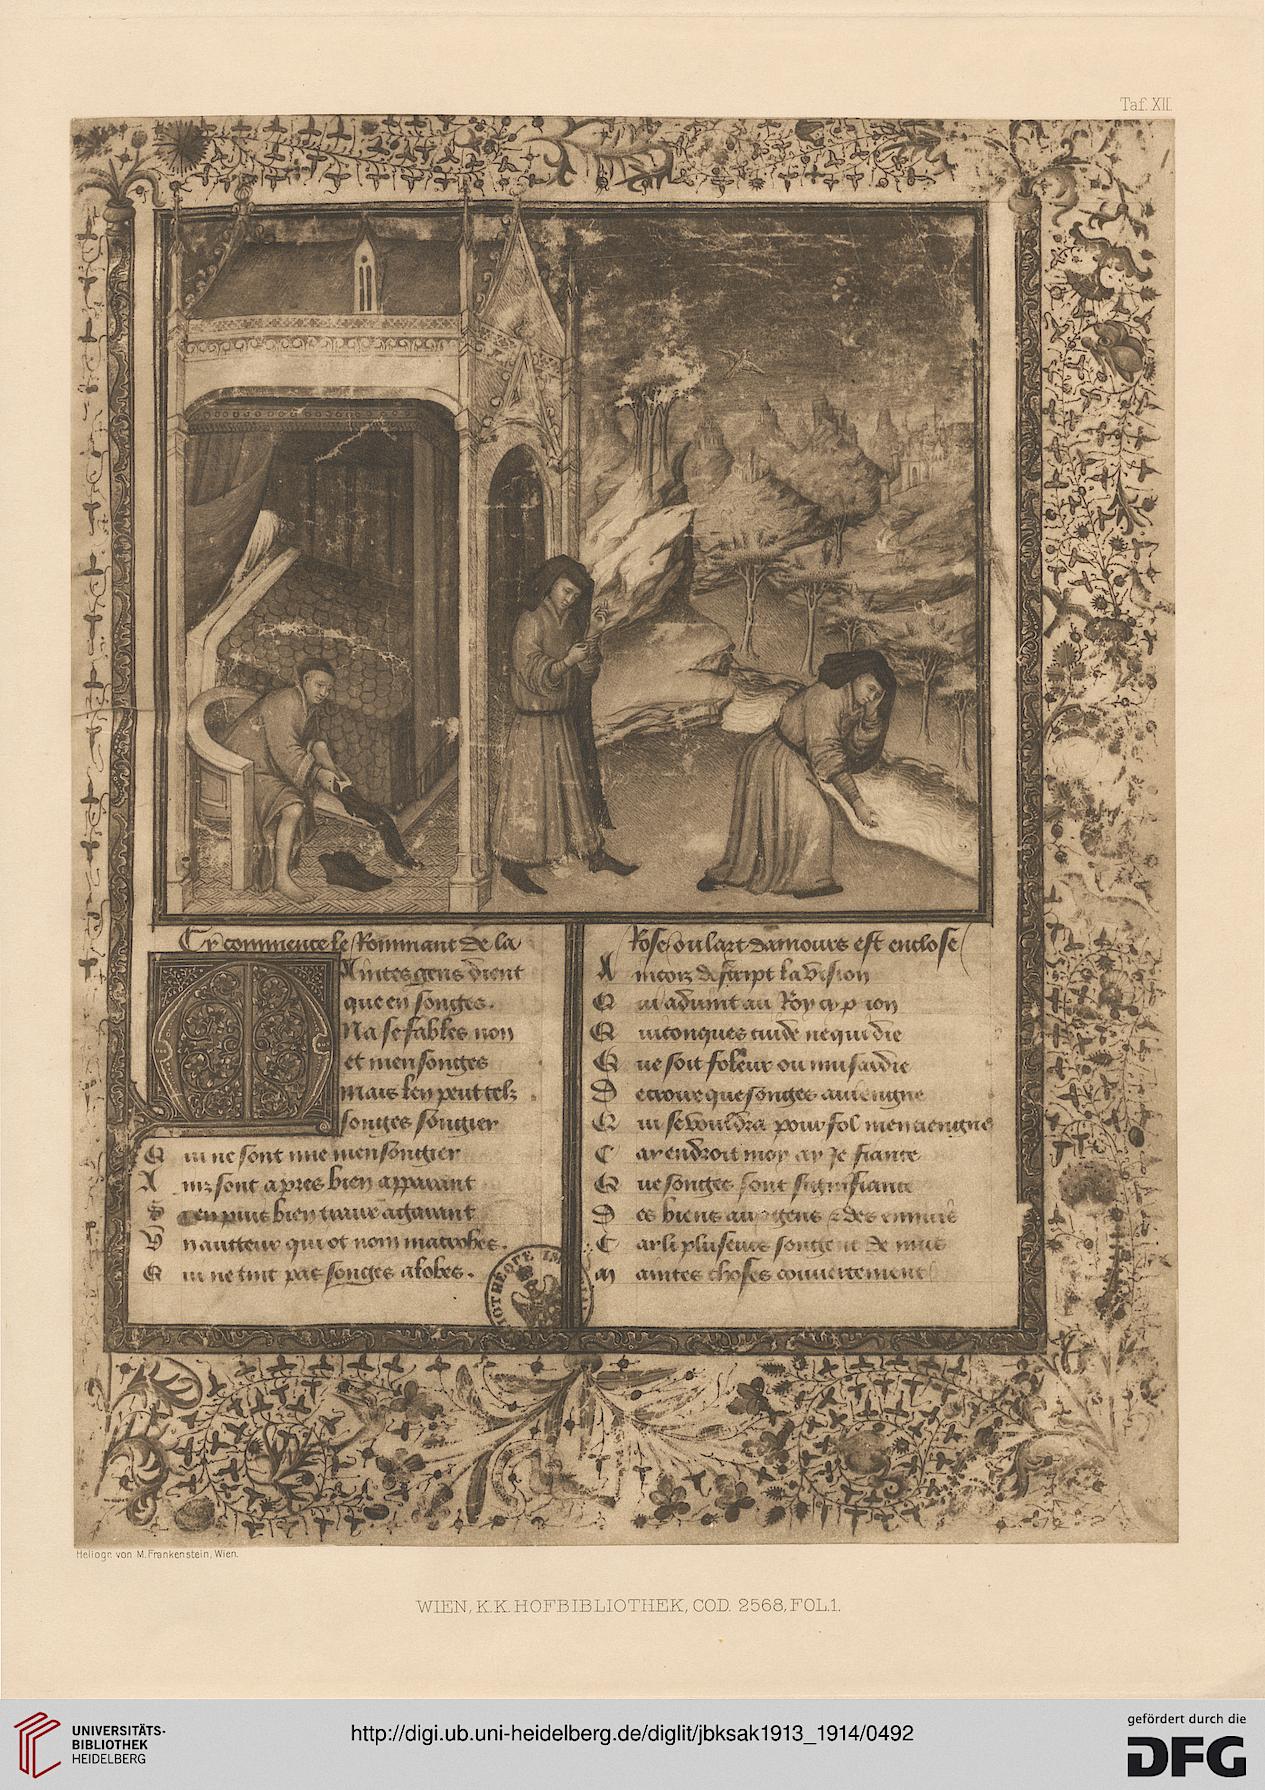 Taf. XII.
Cy commence le Rommant de la
Rose ou lart damours est enclose
Maintes gens dient
que en songes.
Na se fables non
et mensonges
Mais len peut telz
songes songier
Qui ne sont mie mensongier
Ainz sont apres bien apparant
Un aucteur qui ot nom macrobes.
Qui ne tint pas songes a lobes.
Aincoiz descript la vision
Qui advint au Roy cypion
Quiconques cuide ne qui die
Que soit foleur ou musardie
De croire que songes aviengne
Qui se vouldra pour fol men tiengne
Car endroit moy ay Je fiance
Que songes sont signifiance
Des biens aux gens & des ennuis
Car li pluseurs songent de nuis
Maintes choses couvertement
Heliogr. von M. Frankenstein, Wien.
WIEN, K.K. HOFBIBLIOTHEK, COD. 2568, FOL.1.
UNIVERSITÄTS-
BIBLIOTHEK
HEIDELBERG
http://digi.ub.uni-heidelberg.de/diglit/jbksak1913_1914/0492
gefördert durch die
DFG